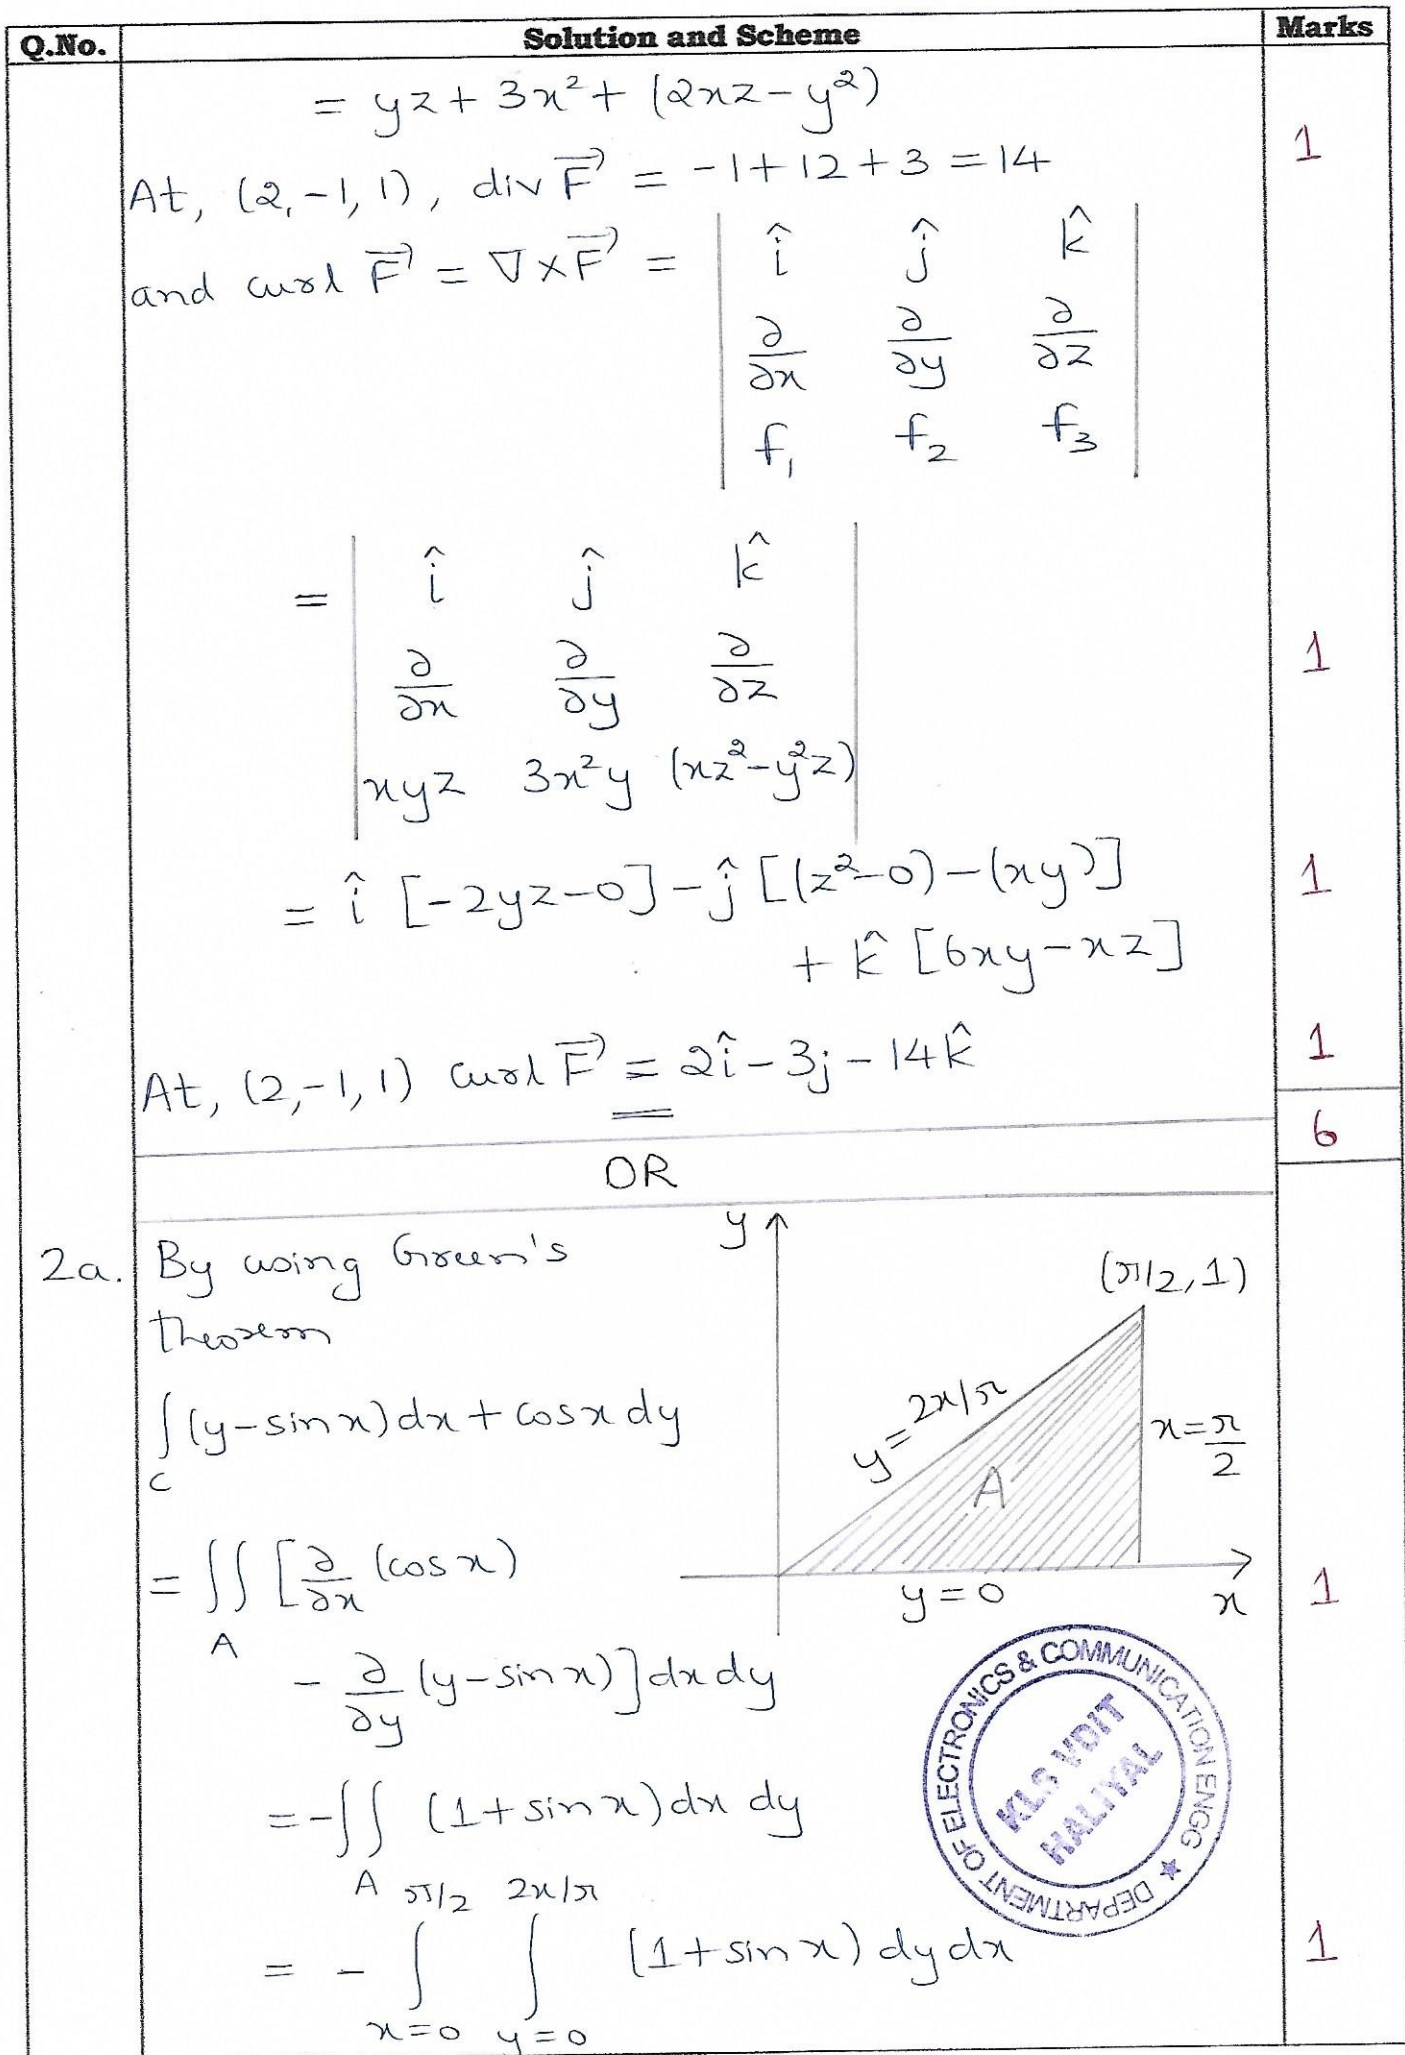 Q.No. Solution and Scheme Marks
= yz + 3x² + (2xz - y²)
At, (2, -1, 1), div F⃗ = -1 + 12 + 3 = 14 1
and curl F⃗ = ∇×F⃗ = | î ĵ k̂ |
| ∂/∂x ∂/∂y ∂/∂z |
| f₁ f₂ f₃ |
= | î ĵ k̂ |
| ∂/∂x ∂/∂y ∂/∂z | 1
| xyz 3x²y (xz²-y²z) |
= î [-2yz-0] - ĵ [(z²-0) - (xy)] 1
+ k̂ [6xy - xz]
At, (2, -1, 1) curl F⃗ = 2î - 3j - 14k̂ 1
6
OR
2a. By using Green's
theorem
∫_C (y-sin x)dx + cosx dy
= ∬_A [∂/∂x (cos x) 1
- ∂/∂y (y-sin x)] dx dy
= -∬_A (1+sin x) dx dy
= - ∫_{x=0}^{π/2} ∫_{y=0}^{2x/π} (1+sin x) dy dx 1
y
(π/2, 1)
y = 2x/π
x = π/2
A
y = 0
x
DEPARTMENT OF ELECTRONICS & COMMUNICATION ENGG ★
KLS VDIT
HALIYAL